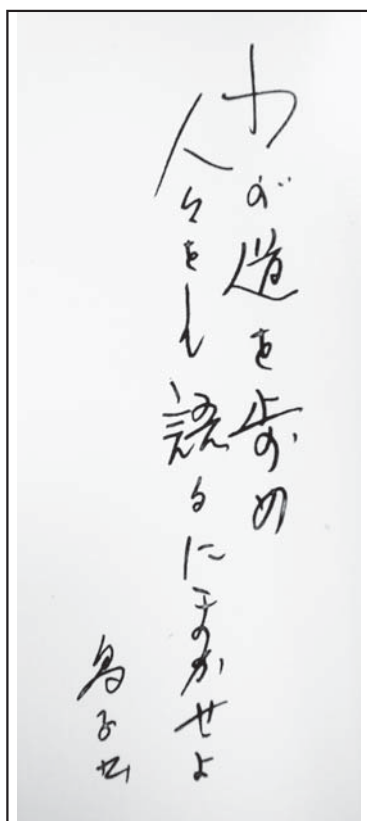 わが道を歩め
人々をして語るにまかせよ